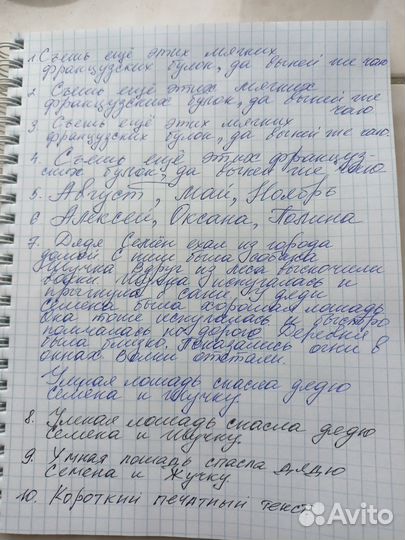 1. Съешь ещё этих мягких
французских булок, да выпей же чаю
2. Съешь ещё этих мягких
французских булок, да выпей же
чаю
3. Съешь ещё этих мягких
французских булок, да выпей же чаю.
4. Съешь ещё этих француз-
ских булок, да выпей же чаю
5. Август, Май, Ноябрь
6 Алексей, Оксана, Полина
7. Дядя Семён ехал из города
домой с ним была собака
Жучка Вдруг из леса выскочили
волки Жучка испугалась и
прыгнула в сани У дяди
Семёна была хорошая лошадь
Она тоже испугалась и быстро
помчалась по дороге Деревня
была близко. Показались огни в
окнах Волки отстали.
Умная лошадь спасла дядю
Семёна и Жучку.
8. Умная лошадь спасла дядю
Семена и Жучку.
9. Умная лошадь спасла дядю
Семена и Жучку
10. Короткий печатный текст
Avito